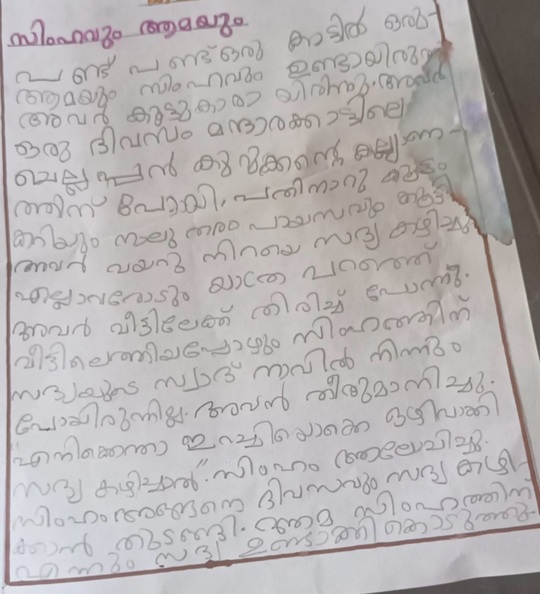 സിംഹവും ആമയും
പണ്ട് പണ്ട് ഒരു കാട്ടിൽ ഒരു
ആമയും സിംഹവും ഉണ്ടായിരുന്നു
അവർ കൂട്ടുകാരായിരിന്നു. അവർ
ഒരു ദിവസം മന്ദാരക്കാട്ടിലെ
കുറുക്കന്റെ കല്ല്യാണ-
ത്തിന് പോയി, പതിനാറു കൂട്ടം
കറിയും നാലു തരം പായസവും കൂട്ടി
അവർ വയറു നിറയെ സദ്യ കഴിച്ചു
എല്ലാവരോടും യാത്ര പറഞ്ഞ്
അവർ വീട്ടിലേക്ക് തിരിച്ച് പോന്നു.
വീട്ടിലെത്തിയപ്പോഴും സിംഹത്തിന്
സദ്യയുടെ സ്വാദ് നാവിൽ നിന്നും
പോയിരുന്നില്ല. അവൻ തീരുമാനിച്ചു.
എനിക്കെന്താ ഇറച്ചിയൊക്കെ ഒഴിവാക്കി
സദ്യ കഴിച്ചാൽ" സിംഹം ആലോചിച്ചു.
സിംഹം അങ്ങനെ ദിവസവും സദ്യ കഴി-
ക്കാൻ തുടങ്ങി. ആമ സിംഹത്തിന്
എന്നും സദ്യ ഉണ്ടാക്കി കൊടുത്തു